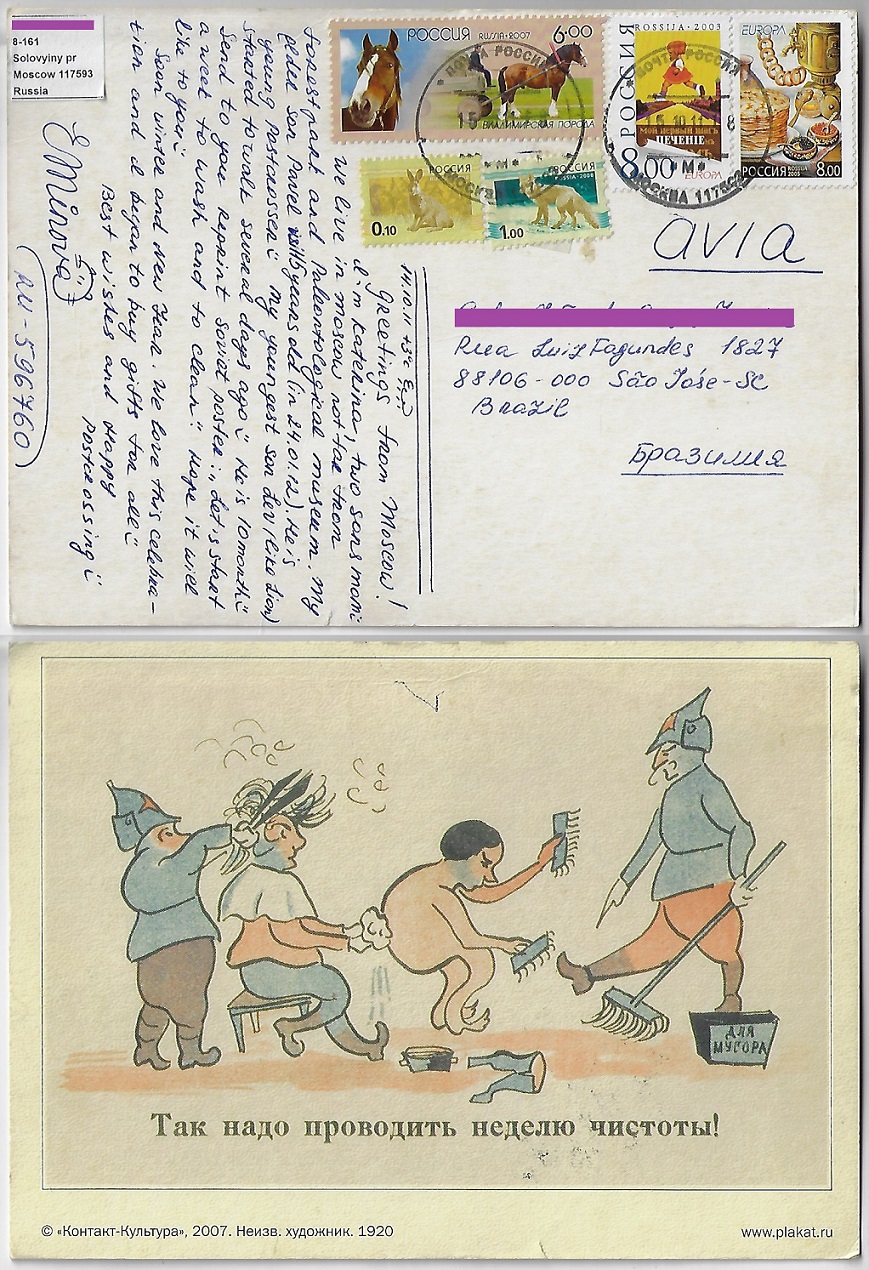 8-161
Solovyiny pr
Moscow 117593
Russia
РОССИЯ RUSSIA·2007 6·00
ВЛАДИМИРСКАЯ ПОРОДА
ROSSIJA·2003
РОССИЯ
ПЕЧЕНИЕ
8.00
EUROPA
EUROPA
РОССИЯ ROSSIJA 2005 8.00
РОССИЯ
0.10
РОССИЯ
RUSSIA·2008
1.00
ПОЧТА РОССИИ
МОСКВА
ПОЧТА РОССИИ
15 10 11
МОСКВА 117593
avia
Rua Luiz Fagundes 1827
88106-000 São José-SC
Brazil
Бразилия
14.10.11 +3°C
Greetings from Moscow!
I'm Katerina, two sons mami
We live in Moscow not far from
forest park and Paleontological museum. My
elder son Pavel 6 years old (in 24.01.12). He is
young postcrosser :) My youngest son Lev (like Lion)
started to walk several days ago :) He is 10 month :)
Send to you reprint soviet poster: „Let's start
a week to wash and to clean". Hope it will
like to you :)
Soon winter and New Year. We love this celebra-
tion and I began to buy gifts for all :)
Best wishes and happy
postcrossing :)
EMinova
(RU-596760)
ДЛЯ
МУСОРА
Так надо проводить неделю чистоты!
© «Контакт-Культура», 2007. Неизв. художник. 1920
www.plakat.ru